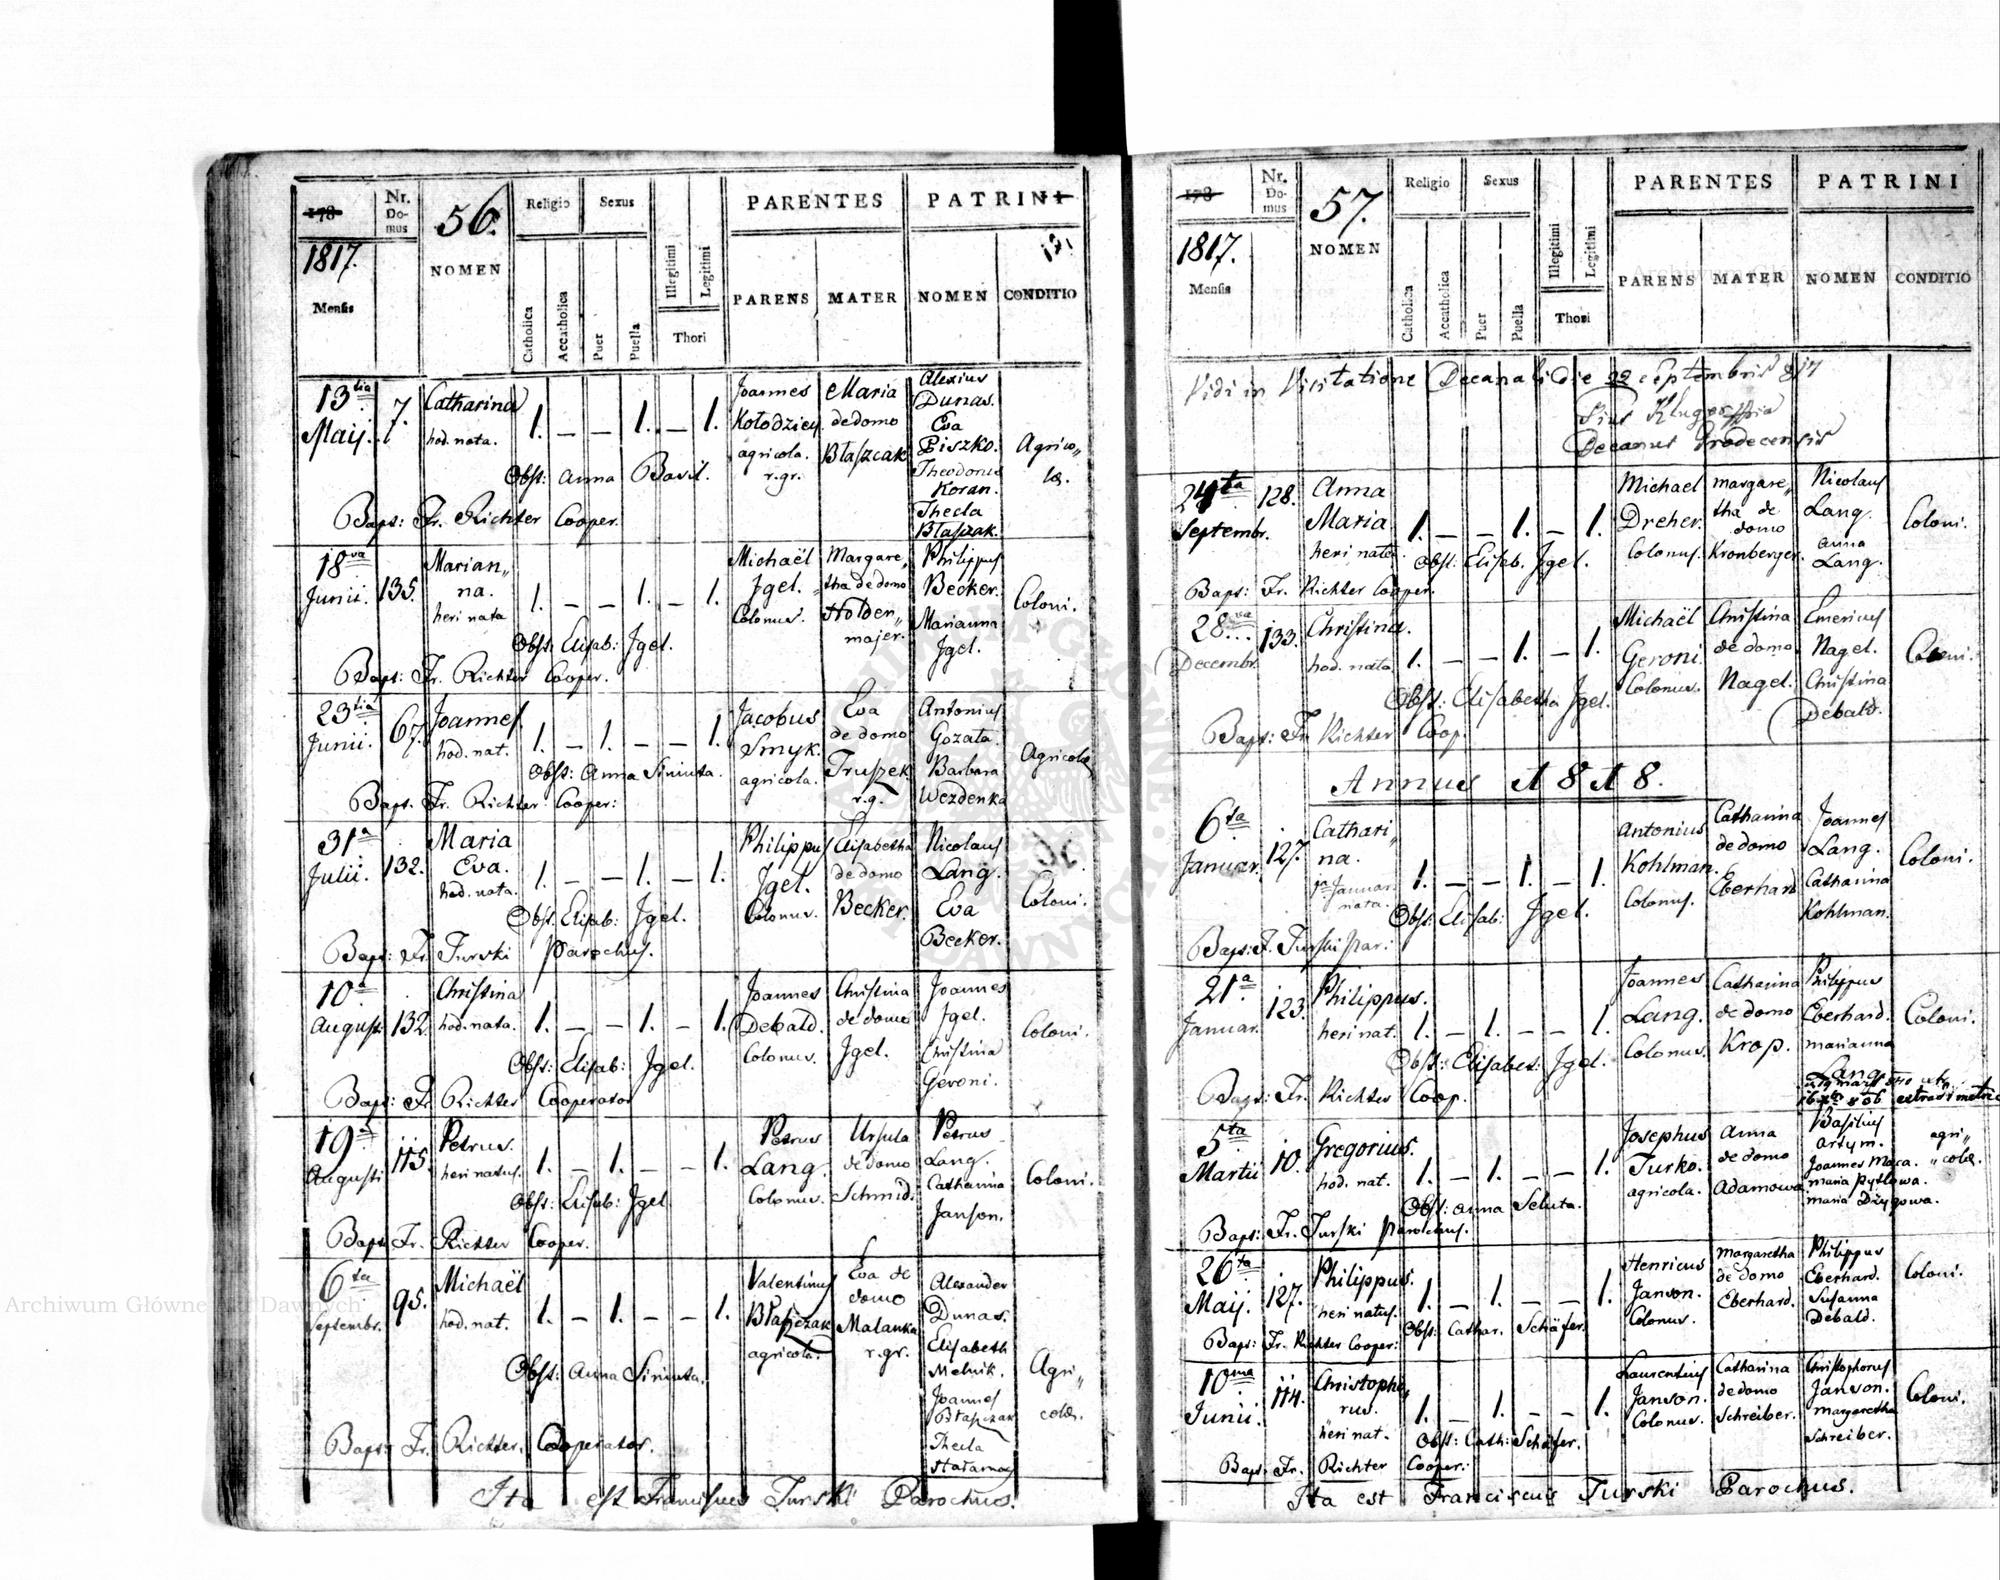 178
Nr. Domus
56.
Religio
Sexus
PARENTES
PATRINI
1817.
Mensis
NOMEN
Catholica
Accatholica
Puer
Puella
Illegitimi
Legitimi
Thori
PARENS
MATER
NOMEN
CONDITIO
13tia Maij. 7. Catharina hod. nata. 1. – – 1. – 1.
Joannes Kołodziey agricola. r. gr.
Maria de domo Błaszczak
Alexius Dunas. Eva Piszko. Theodorus Koran. Thecla Błaszak.
Agrico„ læ.
Obst: Anna Basil.
Bapt: Fr. Richter Cooper.
18va Junii. 135. Marian„ na. heri nata 1. – – 1. – 1.
Michaël Jgel. Colonus.
Margare„ tha de domo Holden„ majer.
Philippus Becker. Marianna Jgel.
Coloni.
Obst: Elisab: Jgel.
Bapt: Fr. Richter Cooper.
23tia Junii. 67. Joannes hod. nat. 1. – 1. – – 1.
Jacobus Smyk. agricola.
Eva de domo Truszek r. g.
Antonius Gozata. Barbara Wezdenka
Agricolæ
Obst: Anna Siniuta.
Bapt. Fr. Richter Cooper:
31a Julii. 132. Maria Eva. hod. nata. 1. – – 1. – 1.
Philippus Jgel. Colonus.
Elisabetha de domo Becker.
Nicolaus Lang. Eva Becker.
Coloni.
Obst: Elisab: Jgel.
Bapt: Fr. Turski Parochus.
10a August. 132. Christina hod. nata. 1. – – 1. – 1.
Joannes Debald. Colonus.
Christina de domo Jgel.
Joannes Jgel. Christina Geroni.
Coloni.
Obst: Elisab: Jgel.
Bapt: Fr Richter Cooperator
19a Augusti 115. Petrus. heri natus. 1. – 1. – – 1.
Petrus Lang. Colonus.
Ursula de domo Schmid.
Petrus Lang. Catharina Janson.
Coloni.
Obst: Elisab: Jgel
Bapt Fr. Richter Cooper.
6ta Septembr. 95. Michaël hod. nat. 1. – 1. – – 1.
Valentinus Błaszczak agricola.
Eva de domo Malanka r. gr.
Alexander Dunas. Elisabeth Melnik. Joannes Błaszczak Thecla
Agri„ colæ.
Obst: Anna Siniuta.
Bapt: Fr. Richter. Cooperator.
Ita est Franciscus Turski Parochus.
178
Nr. Domus
57.
NOMEN
Religio
Sexus
PARENTES
PATRINI
1817.
Mensis
Catholica
Accatholica
Puer
Puella
Illegitimi
Legitimi
Thori
PARENS
MATER
NOMEN
CONDITIO
Vidi in Visitatione Decanali die 22 Septembris 817
Pius Kluger
Decanus Grodecensis
24ta Septembr. 128. Anna Maria heri nata. 1. – – 1. – 1.
Michael Dreher. Colonus.
Margare„ tha de domo Kronberger.
Nicolaus Lang. Anna Lang.
Coloni.
Obst: Elisab. Jgel.
Bapt: Fr. Richter Cooper.
28va Decembr. 133. Christina. hod. nata. 1. – – 1. – 1.
Michaël Geroni. Colonus.
Christina de domo Nagel.
Emericus Nagel. Christina Debald.
Coloni.
Obst: Elisabetha Jgel.
Bapt: Fr. Richter Coop.
Annus 1818.
6ta Januar. 127. Cathari„ na. Januar. nata. 1. – – 1. – 1.
Antonius Kohlman. Colonus.
Catharina de domo Eberhard
Joannes Lang. Catharina Kohlman.
Coloni.
Obst: Elisab: Jgel.
Bapt: F. Turski Par:
21a Januar. 123. Philippus. heri nat. 1. – 1. – – 1.
Joannes Lang. Colonus.
Catharina de domo Krop.
Philippus Eberhard. Marianna Lang
Coloni.
Obst: Elisabet: Jgel.
Bapt: Fr. Richter Coop.
5ta Martii 10. Gregorius. hod. nat. 1. – 1. – – 1.
Josephus Turko. agricola.
Anna de domo Adamowa
Basilius Artym. Joannes Maca. Maria Pytlowa. Maria Dżygowa.
agri„ „colæ.
Obst: Anna Seluta.
Bapt: Fr. Turski Parochus.
26ta Maij. 127. Philippus. heri natus. 1. – 1. – – 1.
Henricus Janson. Colonus.
Margaretha de domo Eberhard.
Philippus Eberhard. Susanna Debald.
Coloni.
Obst: Cathar. Schäfer.
Bapt: Fr. Richter Cooper:
10ma Junii. 114. Christopho„ rus. heri nat. 1. – 1. – – 1.
Laurentius Janson. Colonus.
Catharina de domo Schreiber.
Christophorus Janson. Margaretha Schreiber.
Coloni.
Obst: Cath: Schäfer.
Bapt. Fr. Richter Cooper:
Ita est Franciscus Turski Parochus.
Archiwum Główne Akt Dawnych